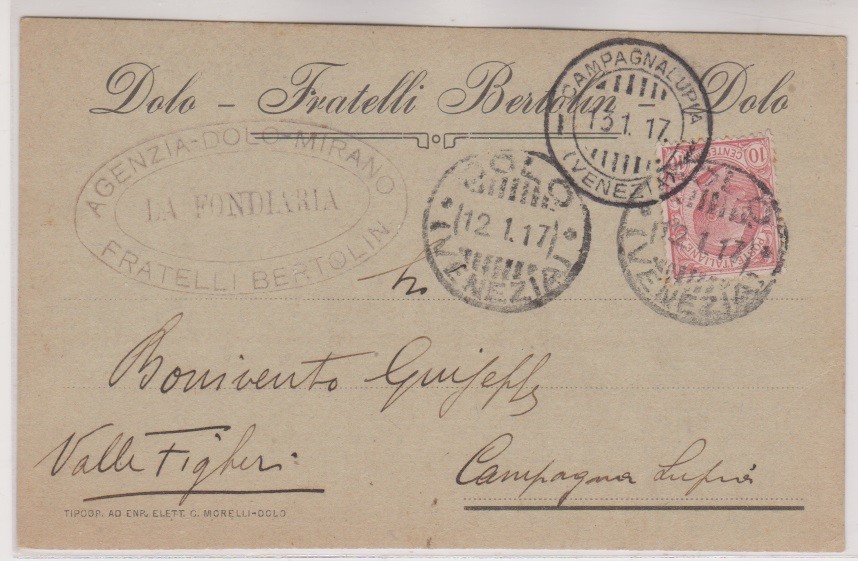 Dolo – Fratelli Bertolin – Dolo
AGENZIA-DOLO-MIRANO
LA FONDIARIA
FRATELLI BERTOLIN
CAMPAGNALUPIA
13.1.17.
(VENEZIA)
DOLO
12.1.17
(VENEZIA)
DOLO
12.1.17
(VENEZIA)
10 CENTE
POSTE ITALIANE
Bonivento Guiseppe
Valle Figheri
Campagna Lupia
TIPOGR. AD ENR. ELETT. C. MORELLI-DOLO